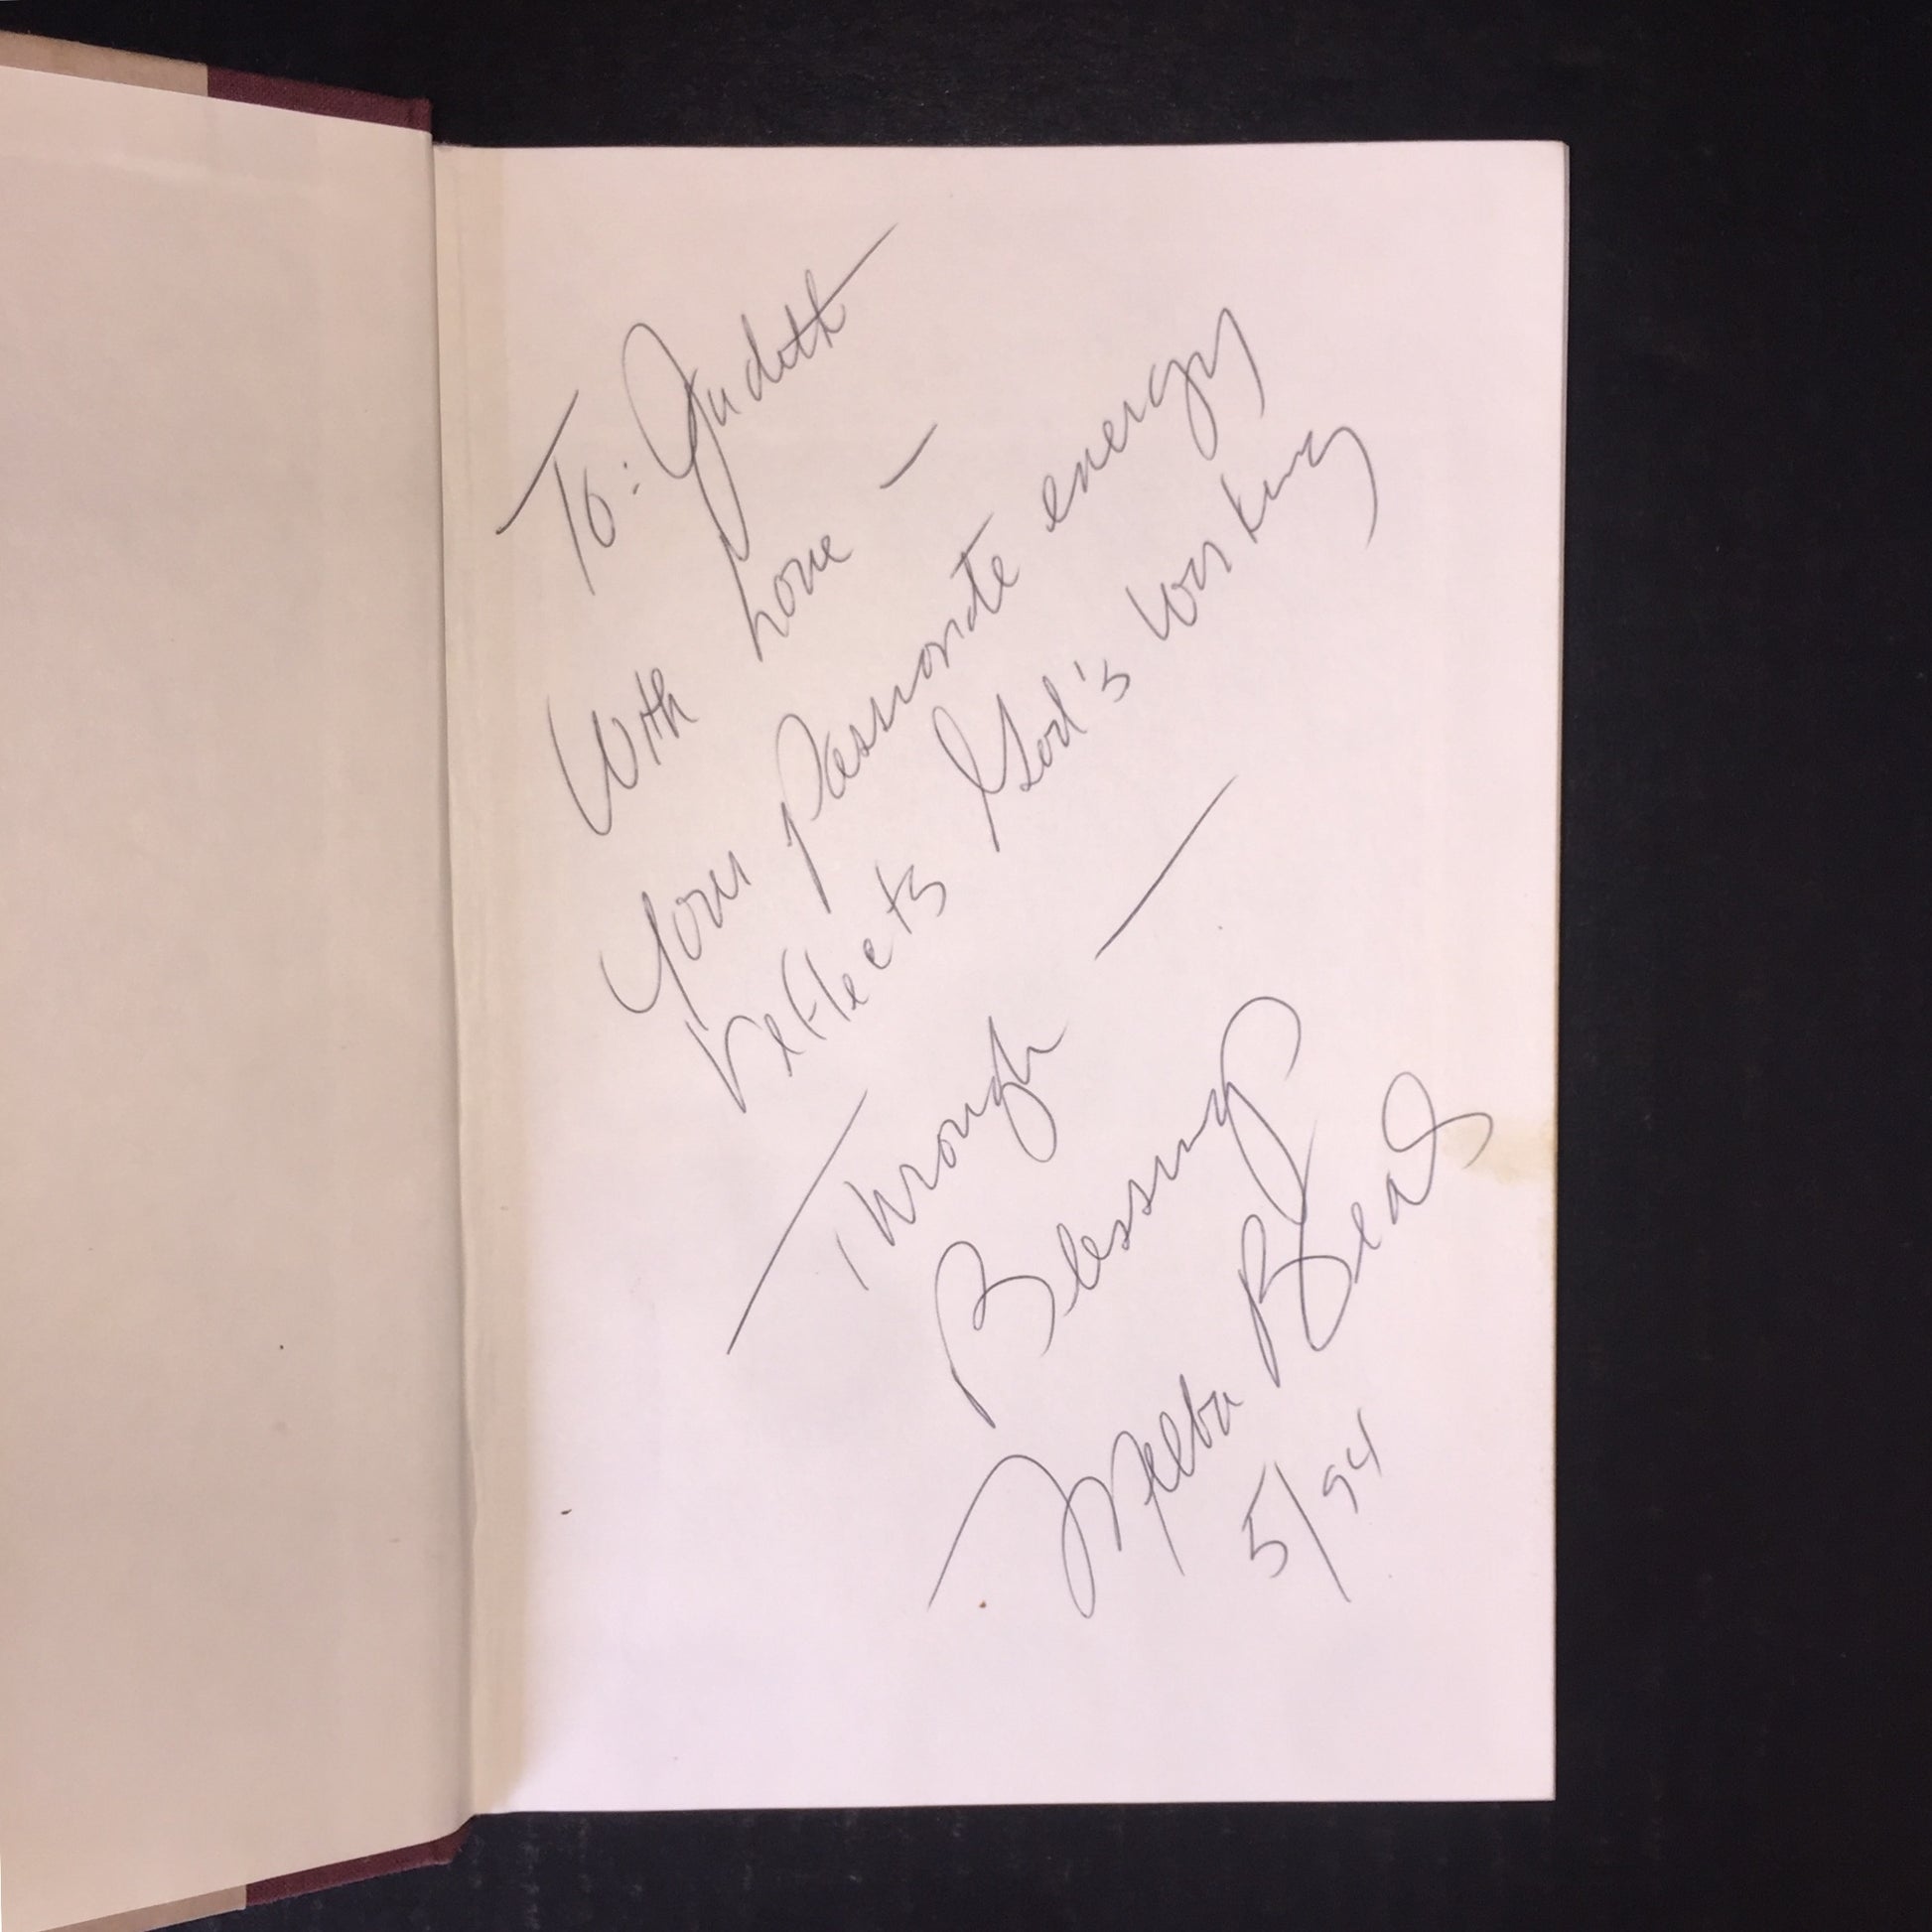 To: Judith
With Love —
Your passionate energy
reflects God's working
Through —
Blessings
Melba Beals
5/94